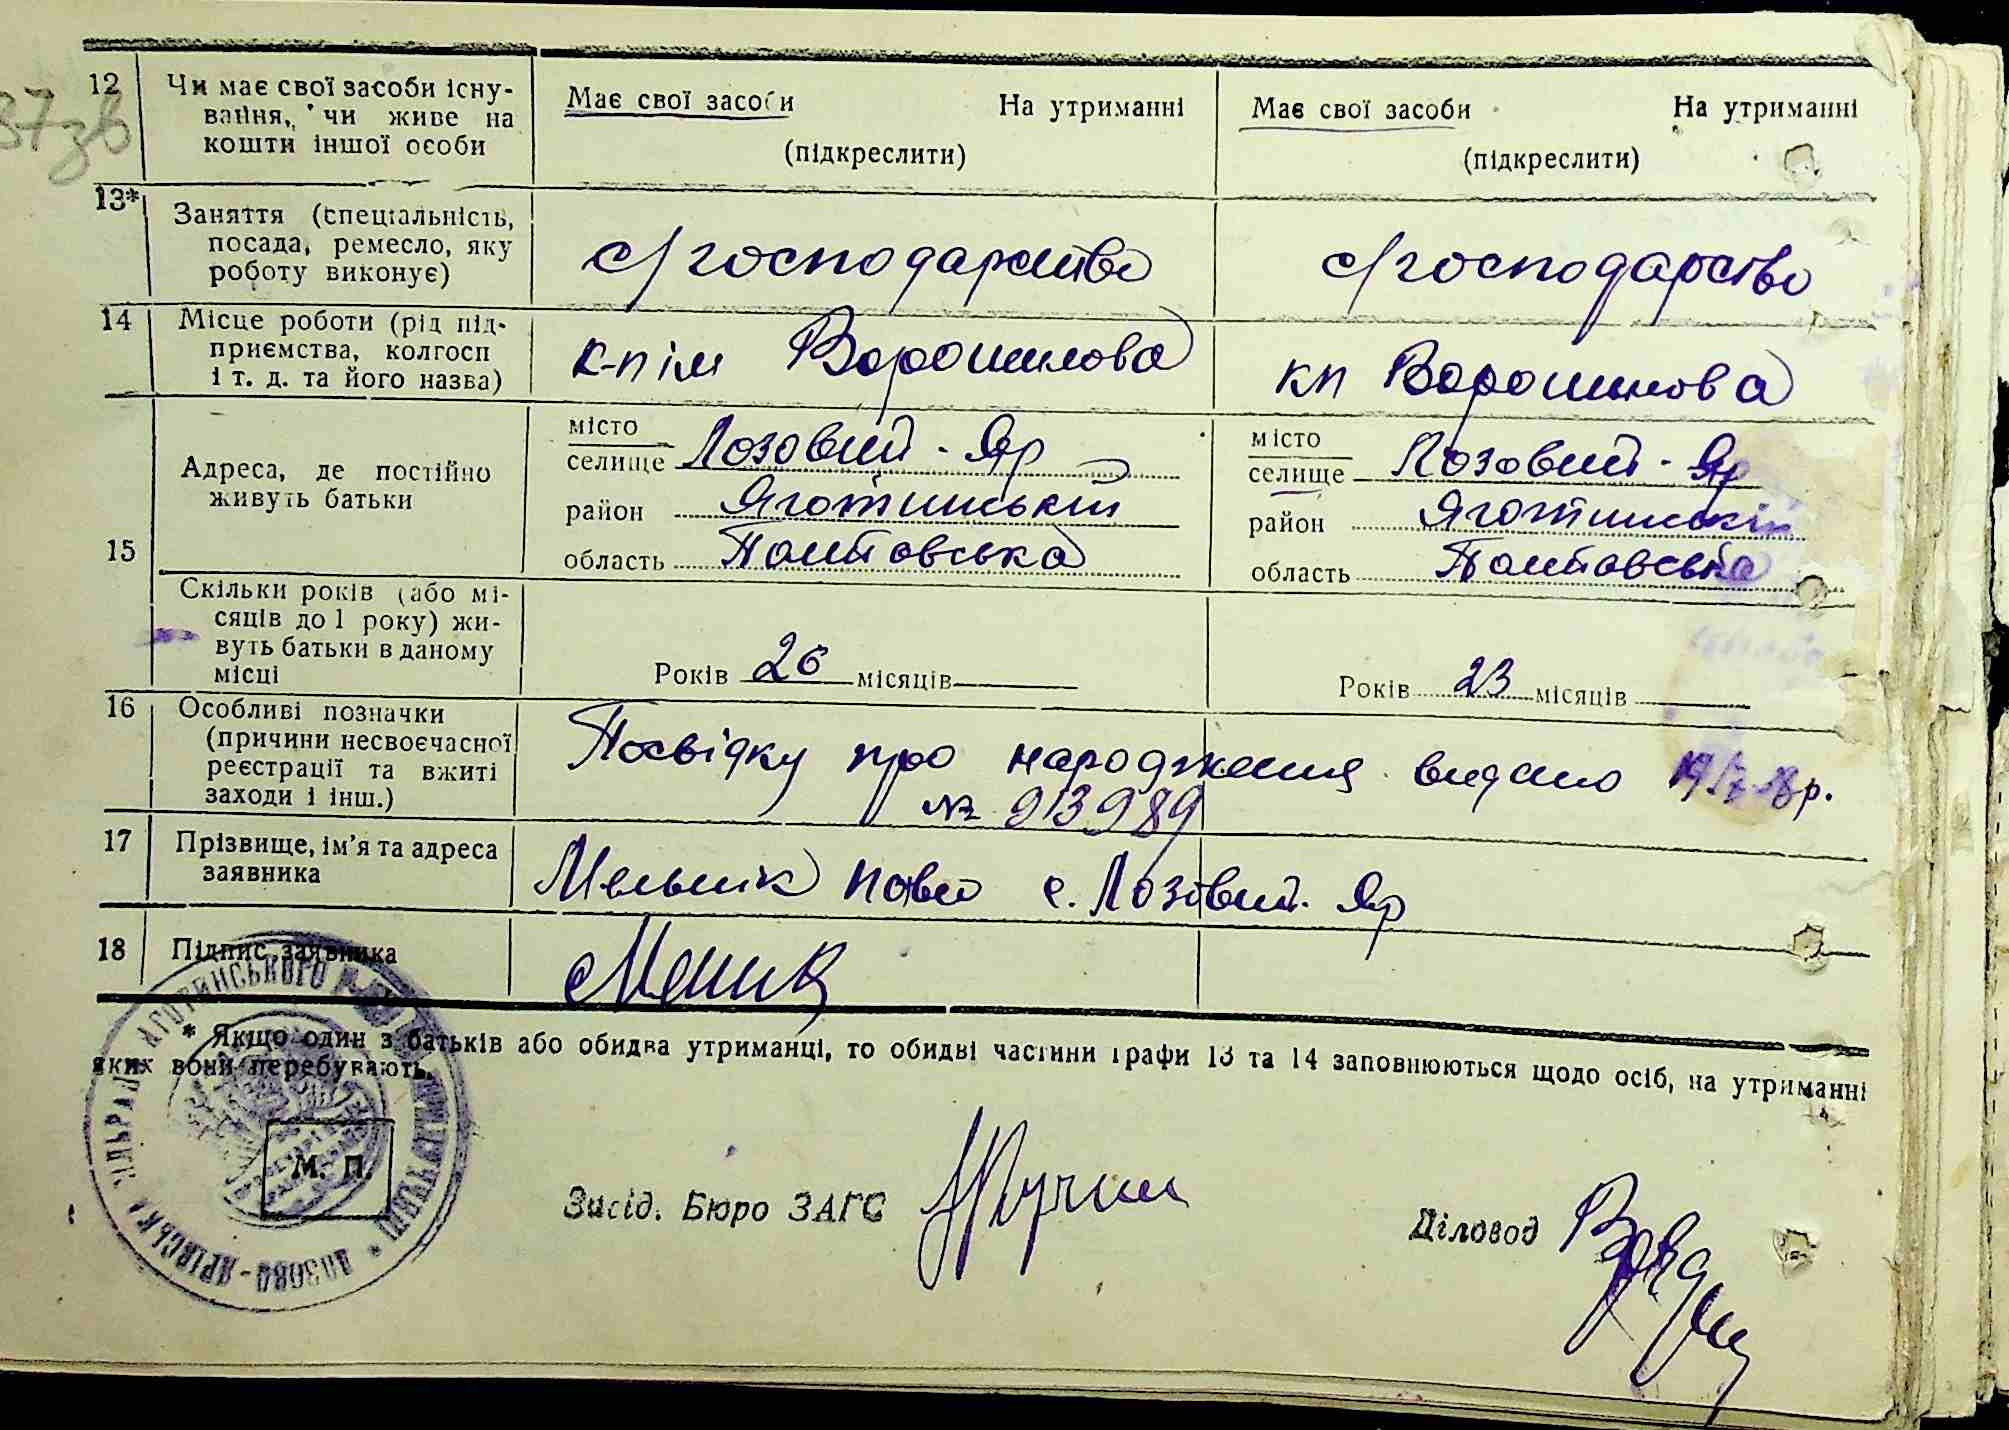 12 Чи має свої засоби існу-
вання, чи живе на
кошти іншої особи
Має свої засоби На утриманні
(підкреслити)
Має свої засоби На утриманні
(підкреслити)
13* Заняття (спеціальність,
посада, ремесло, яку
роботу виконує)
с/господарство
с/господарство
14 Місце роботи (рід під-
приємства, колгосп
і т. д. та його назва)
к-п ім Ворошилова
кп Ворошилова
15 Адреса, де постійно
живуть батьки
місто
селище Лозовий-Яр
район Яготинський
область Полтавська
місто
селище Лозовий-Яр
район Яготинський
область Полтавська
Скільки років (або мі-
сяців до 1 року) жи-
вуть батьки в даному
місці
Років 26 місяців
Років 23 місяців
16 Особливі позначки
(причини несвоєчасної
реєстрації та вжиті
заходи і інш.)
Посвідку про народження видано р.
№ 913989
17 Прізвище, ім'я та адреса
заявника
Мельник с. Лозовий-Яр
18 Підпис заявника
* Якщо один з батьків або обидва утриманці, то обидві частини графи 13 та 14 заповнюються щодо осіб, на утриманні
яких вони перебувають.
М. П.
Засід. Бюро ЗАГС
Діловод